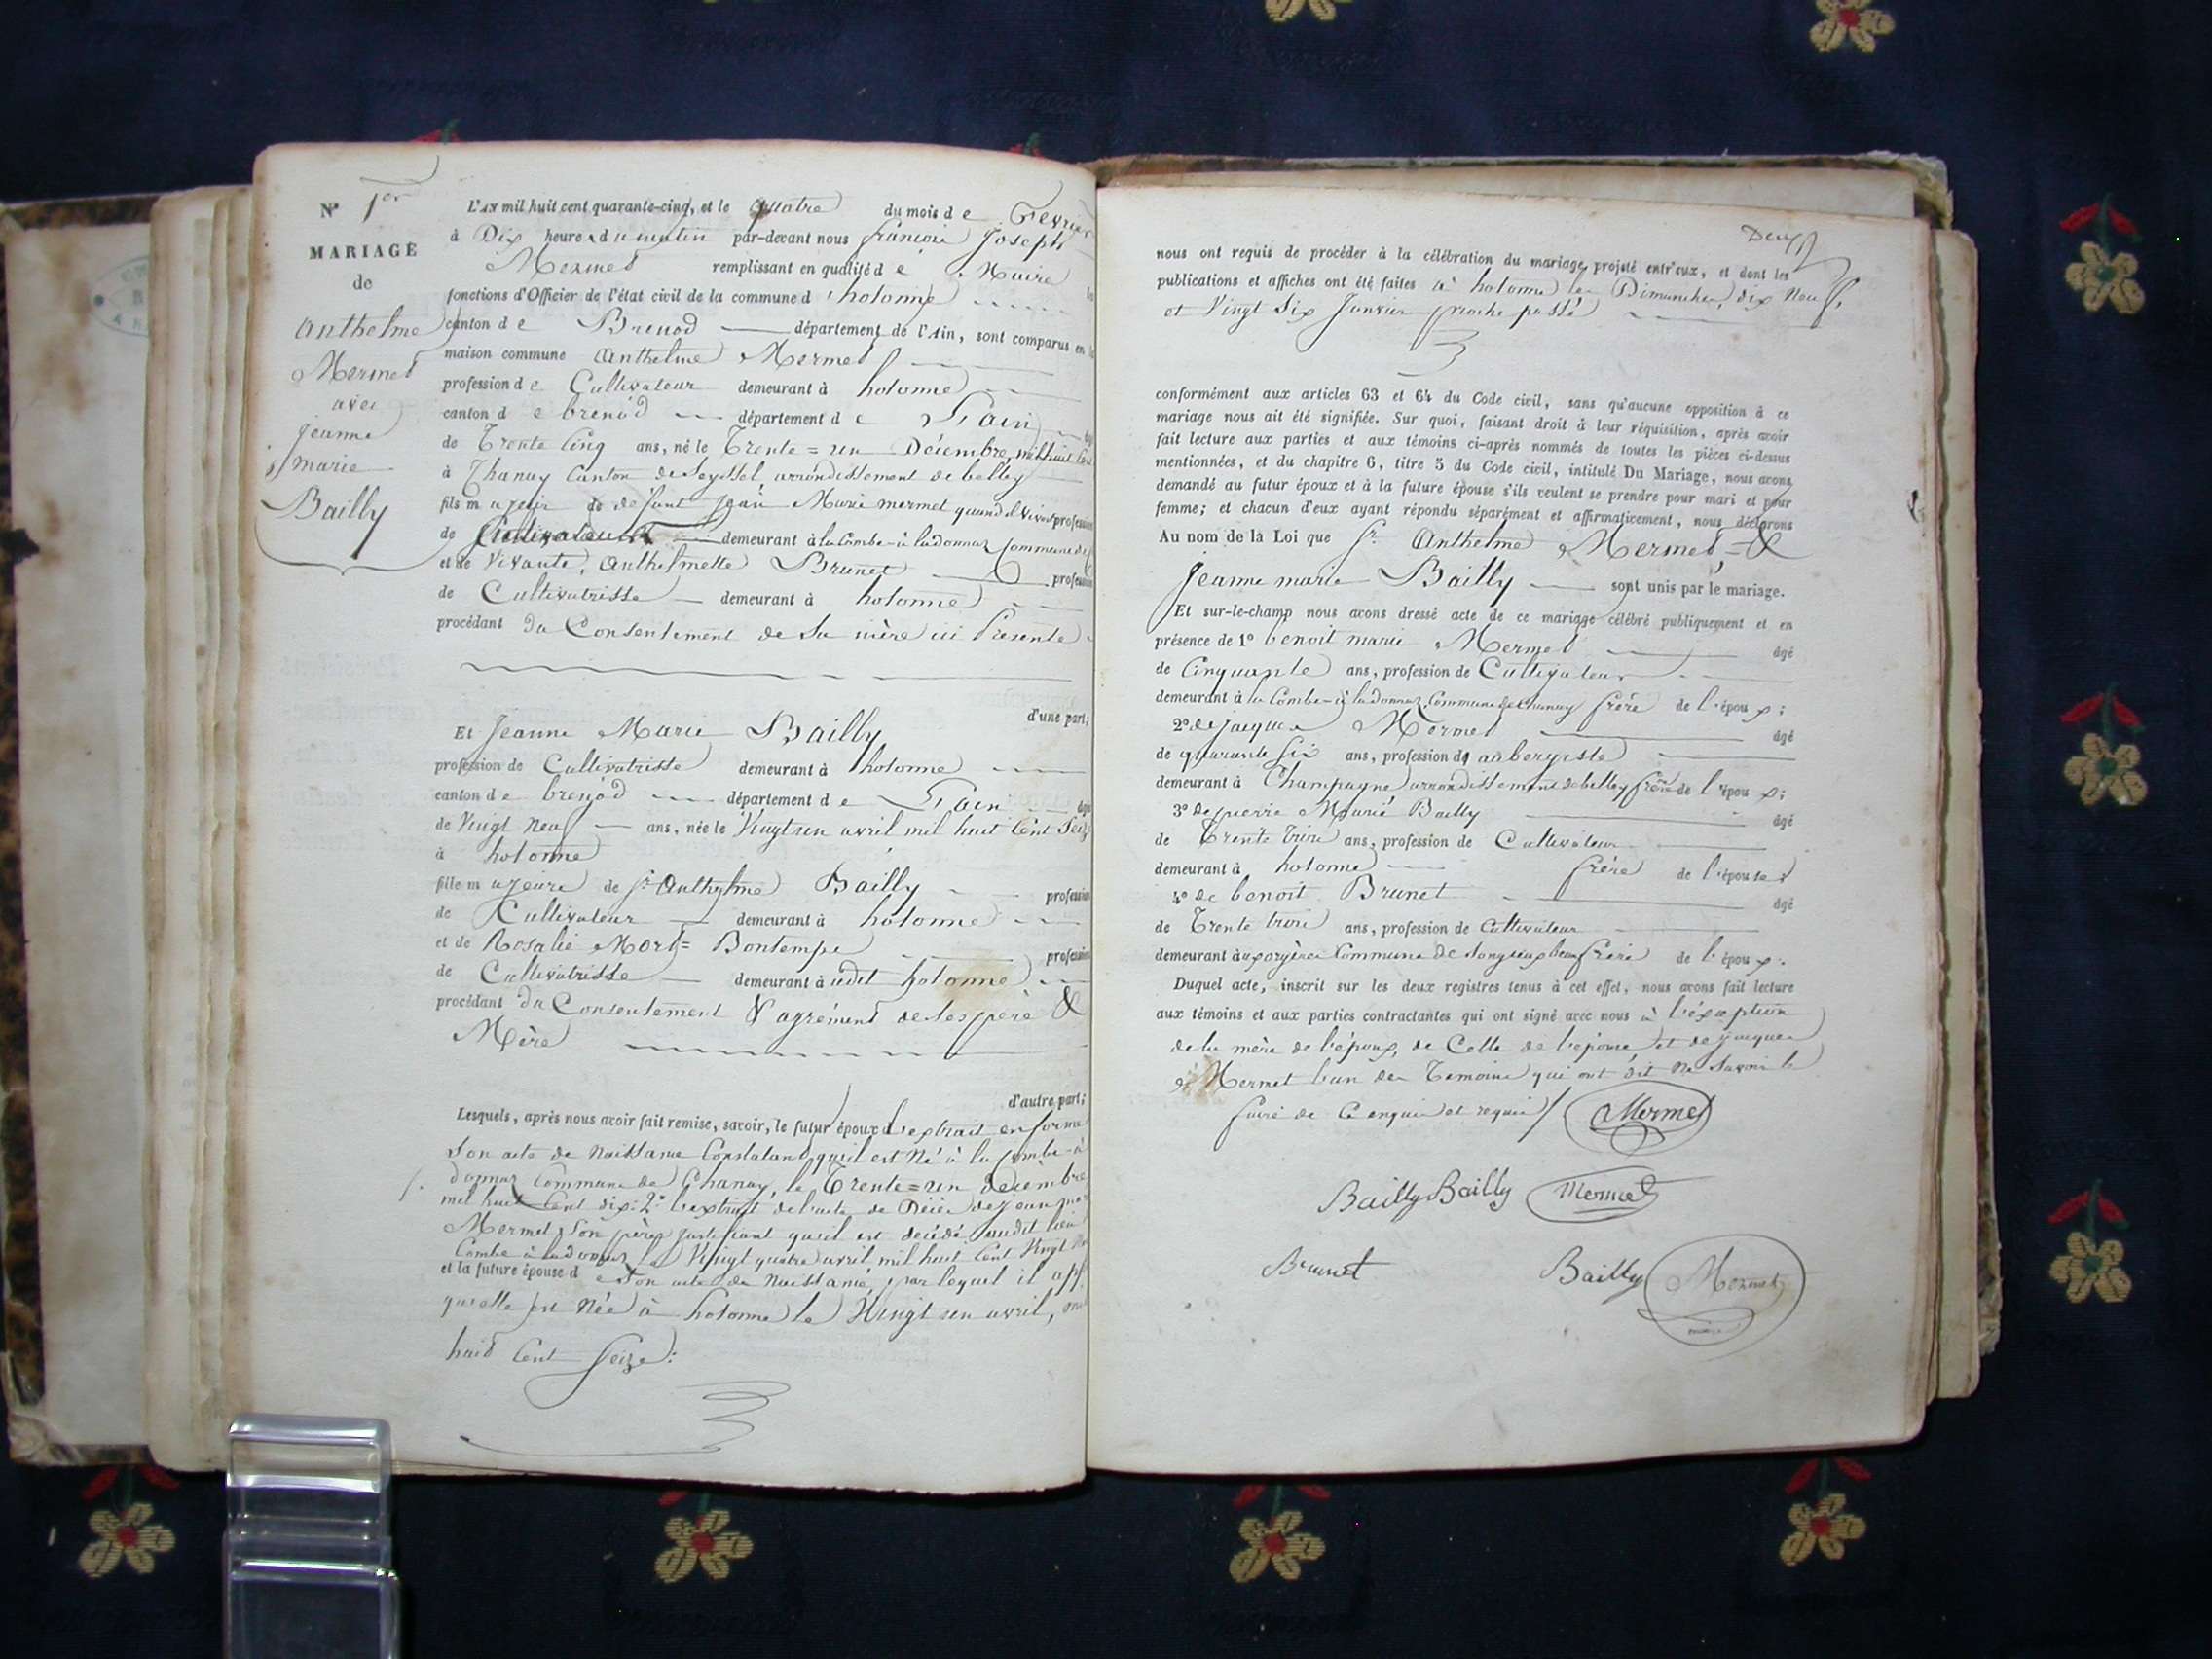 N° 1er
MARIAGE
de
Anthelme
Mermet
avec
Jeanne
marie
Bailly
L'AN mil huit cent quarante-cinq, et le quatre du mois de Fevrier
à Dix heures du matin par-devant nous françois Joseph
Mermet remplissant en qualité de Maire
fonctions d'Officier de l'état civil de la commune d'hotonne
canton de Brenod département de l'Ain, sont comparus en
maison commune Anthelme Mermet
profession de Cultivateur demeurant à hotonne
canton de brenod département de l'ain
de Trente Cinq ans, né le Trente=un Décembre, mil huit Cent
à Chanay Canton de Seyssel, arrondissement de belley
fils majeur de defunt Jean Marie mermet quand il vivait profession
de Cultivateur demeurant à la Combe-à ladonnaz Commune de
et de Vivante, Anthelmette Brunet profession
de Cultivatrisse demeurant à hotonne
procédant du Consentement de Sa mère ici Présente
d'une part;
Et Jeanne Marie Bailly
profession de Cultivatrisse demeurant à hotonne
canton de brenod département de l'ain âgée
de Vingt neuf ans, née le Vingt un avril mil huit Cent Seize
à hotonne
fille majeure de Sr Anthelme Bailly profession
de Cultivateur demeurant à hotonne
et de Rosalie Mort= Bontemps profession
de Cultivatrisse demeurant à udit hotonne
procédant du Consentement & agrément de Ses père &
Mère
d'autre part;
Lesquels, après nous avoir fait remise, savoir, le futur époux d'extrait en forme
Son acte de Naissance Constatant qu'il est Né à la Combe-à
donnaz Commune de Chanay, le Trente=un décembre
mil huit Cent dix: 2° l'extrait de l'acte de Décès de jean
Mermet Son père justifiant qu'il est décédé audit lieu
Combe à ladonnaz le Vingt quatre avril mil huit Cent Vingt
et la future épouse de Son acte de Naissance, par lequel il
qu'elle est Née à hotonne le Vingt un avril,
huit Cent Seize:
Deux
nous ont requis de procéder à la célébration du mariage projeté entr'eux, et dont les
publications et affiches ont été faites à hotonne les Dimanches, dix Neuf,
et Vingt Six Janvier proche passé
conformément aux articles 63 et 64 du Code civil, sans qu'aucune opposition à ce
mariage nous ait été signifiée. Sur quoi, faisant droit à leur réquisition, après avoir
fait lecture aux parties et aux témoins ci-après nommés de toutes les pièces ci-dessus
mentionnées, et du chapitre 6, titre 5 du Code civil, intitulé Du Mariage, nous avons
demandé au futur époux et à la future épouse s'ils veulent se prendre pour mari et pour
femme; et chacun d'eux ayant répondu séparément et affirmativement, nous déclarons
Au nom de la Loi que Sr Anthelme Mermet, &
Jeanne marie Bailly sont unis par le mariage.
Et sur-le-champ nous avons dressé acte de ce mariage célébré publiquement et en
présence de 1° benoit marie Mermet âgé
de Cinquante ans, profession de Cultivateur
demeurant à la Combe-à ladonnaz, Commune de Chanay frère de l'époux;
2° de jacques Mermet âgé
de quarante Six ans, profession d'aubergiste
demeurant à Champagne arrondissement de belley frère de l'époux;
3° de pierre Marie Bailly âgé
de Trente trois ans, profession de Cultivateur
demeurant à hotonne frère de l'épouse
4° de benoit Brunet âgé
de Trente trois ans, profession de Cultivateur
Commune de Songieux beau frère de l'époux.
Duquel acte, inscrit sur les deux registres tenus à cet effet, nous avons fait lecture
aux témoins et aux parties contractantes qui ont signé avec nous à l'exeption
de la mère de l'époux, de Celle de l'épouse, et de jacques
Mermet l'un des Temoins qui ont dit ne Savoir le
faire de Ce enquis et requis
AMermet
Bailly Bailly Mermet
Brunet Bailly Mermet
maire